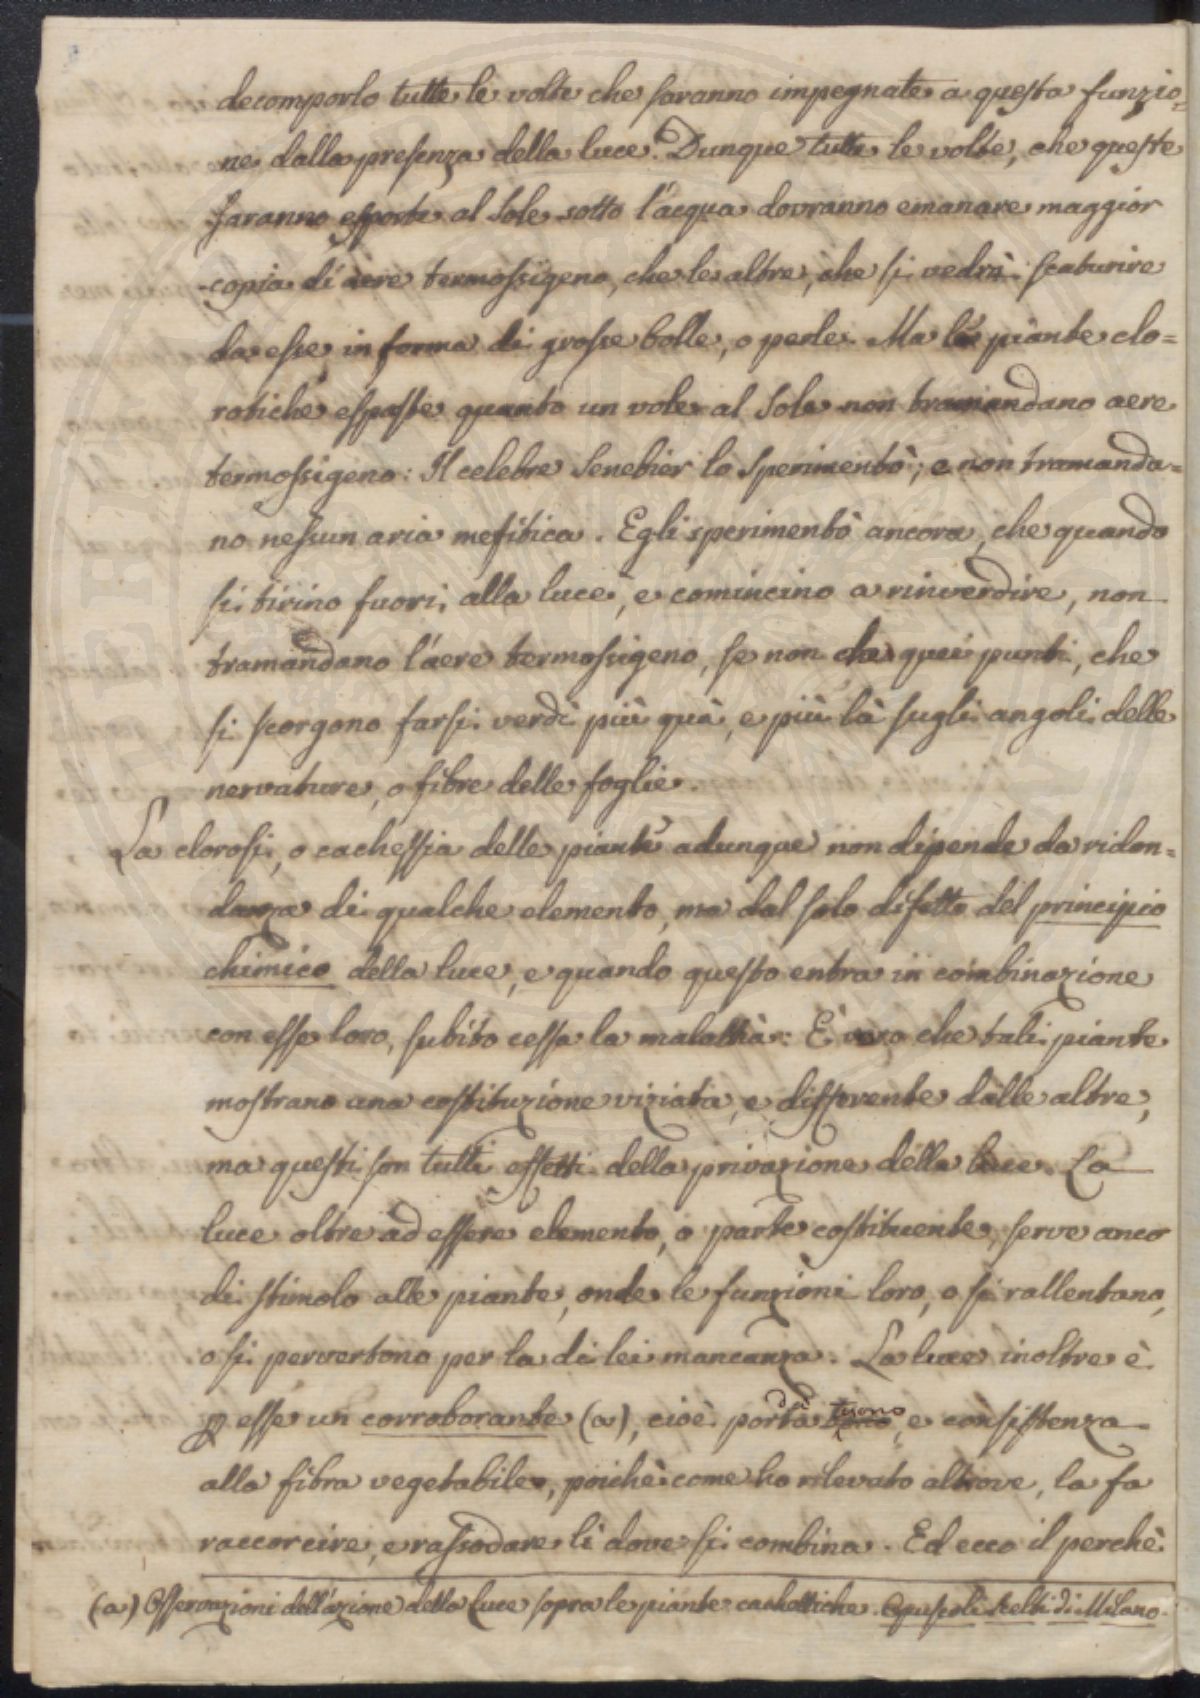 decomporlo tutte le volte che saranno impegnate a questa funzio=
ne dalla presenza della luce. Dunque tutte le volte, che queste
saranno esposte al Sole sotto l'acqua dovranno emanare maggior
copia di aere termossigeno, che le altre, che si vedrà scaturire
da esse in forma di grosse bolle, o perle. Ma le piante clo=
rotiche esposte quanto un vole al Sole non tramandano aere
termossigeno: Il celebre Senebier lo sperimentò; e non tramanda=
no nessun aria mefitica. Egli sperimentò ancora, che quando
si tirino fuori, alla luce, e comincino a rinverdire, non
tramandano l'aere termossigeno, se non da quei punti, che
si scorgono farsi verdi più quà, e più là sugli angoli delle
nervature, o fibre delle foglie.
La clorosi, o cachessia delle piante adunque non dipende da ridon=
danza di qualche elemento, ma dal solo difetto del principio
chimico della luce, e quando questo entra in combinazione
con esse loro, subito cessa la malattia: È vero che tali piante
mostrano una costituzione viziata, e differente dalle altre,
ma questi son tutti effetti della privazione della luce. La
luce oltre ad essere elemento, o parte costituente, serve anco
di stimolo alle piante, onde le funzioni loro, o si rallentano,
o si pervertono per la di lei mancanza. La luce inoltre è
p esse un corroborante (a), cioè porta tuono, e consistenza
alla fibra vegetabile, poichè come ho rilevato altrove, la fa
raccorcire, e rassodare lì dove si combina. Ed ecco il perchè
(a) Osservazioni dell'azione della Luce sopra le piante cachettiche. Opuscoli Scelti di Milano.